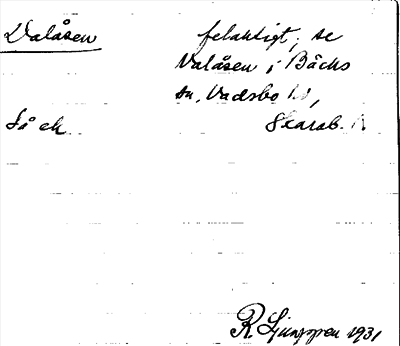 Valåsen felaktigt, se
Valåsen i Bäcks
sn, Vadsbo hd,
Så ek. Skarab. l.
R. Ljunggren 1931